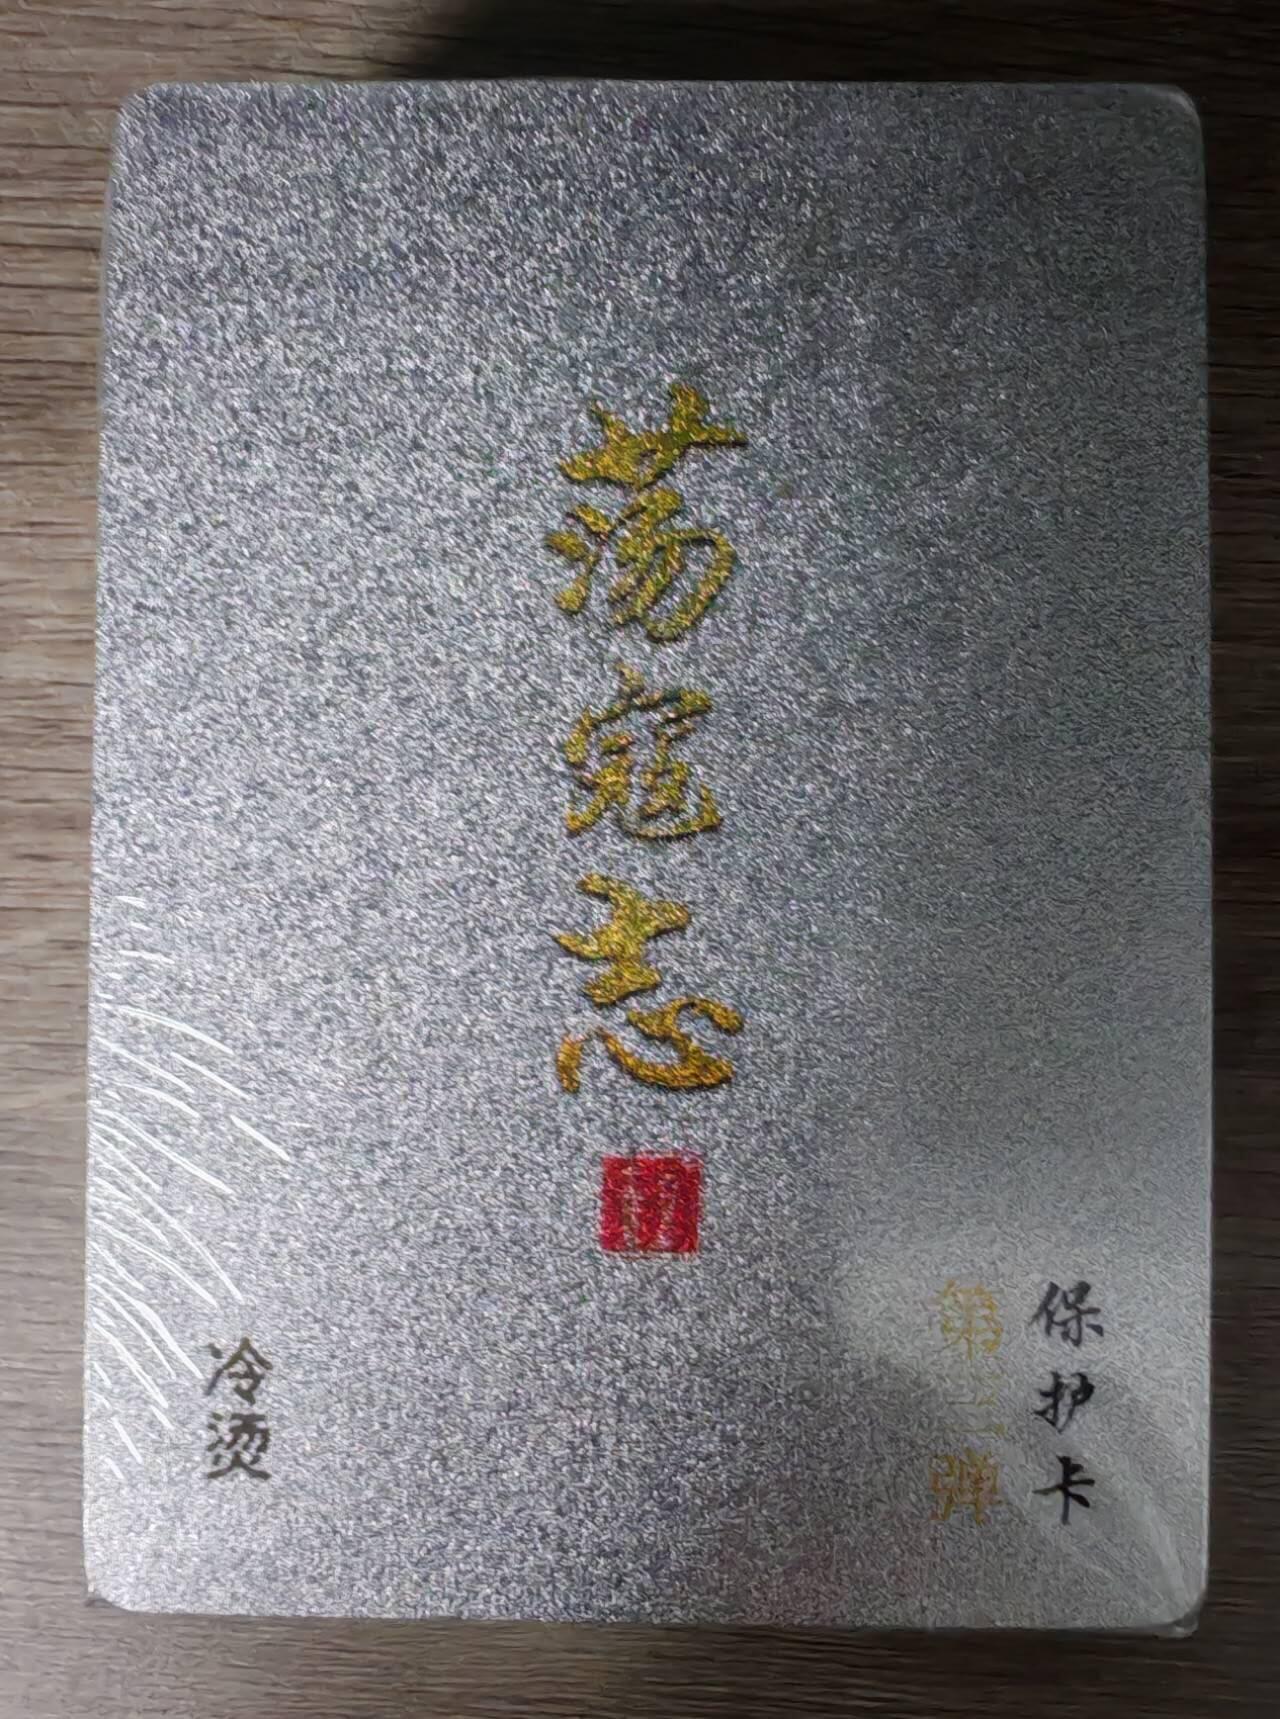 荡寇志
保护卡
第二弹
冷烫